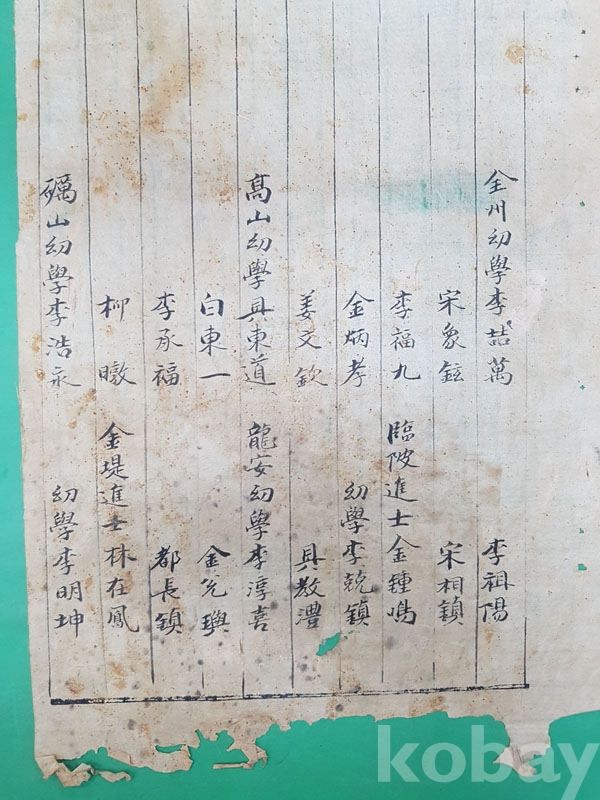 全州幼學李喆萬 李祖陽
宋象鉉 宋相鎮
李福九 臨陂進士金鍾鳴
金炳孝 幼學李兢鎮
姜文欽 具教澧
高山幼學具東道 龍安幼學李淳喜
白東一 金允璵
李承福 都長鎮
柳暾 金堤進士林在鳳
礪山幼學李浩永 幼學李明坤
kobay